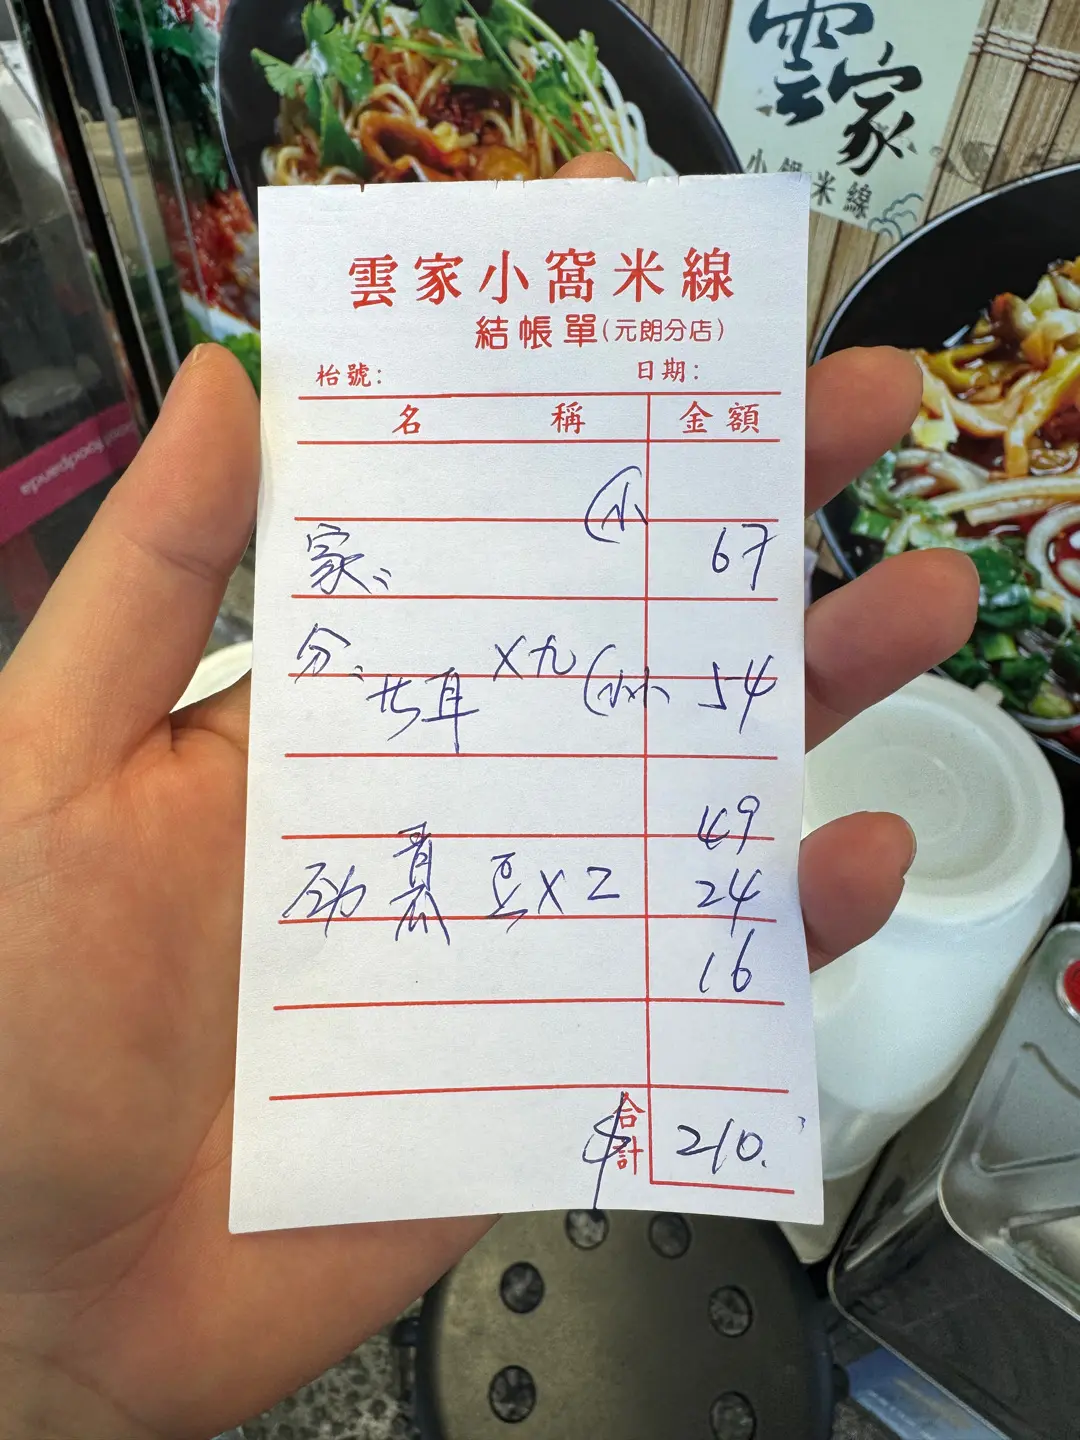 雲家
小窩米線
雲家小窩米線
結帳單(元朗分店)
枱號: 日期:
名 稱 金額
(小
家 67
分 X九
(小 54
49
青瓜 豆 X 2 24
16
合計 $ 210.
foodpanda